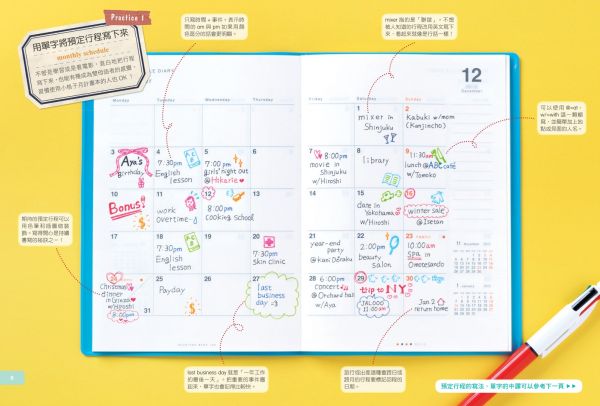 Practice 1
用單字將預定行程寫下來
monthly schedule
不管是學習或是看電影，直白地把行程
寫下來，也能有種成為雙母語者的感覺。
習慣使用小格子月計畫本的人也 OK！
只寫時間＋事件。表示時
間的 am 與 pm 如果用顏
色區分的話會更明顯。
mixer 指的是「聯誼」，不想
被人知道的行程改用英文寫下
來，看起來就像是行話一樣！
可以使用 @=at、
w/=with 這一類縮
寫，並簡單加上地
點或見面的人名。
期待的預定行程可以
用色筆和插圖做裝
飾，寫得開心是持續
書寫的秘訣之一！
last business day 就是「一年工作
的最後一天」，把重要的事件圈
起來，單字也會記得比較快。
旅行和出差這種會跨日或
跨月的行程要標記回程的
日期。
預定行程的寫法、單字的中譯可以參考下一頁
DIARY
12
December
Monday
Tuesday
Wednesday
Thursday
Friday
Saturday
Sunday
1
mixer in
Shinjuku
2
Kabuki w/mom
(Kanjincho)
3
Aya's
Birthday
4
7:30pm
English
lesson
5
7:00 pm
girls' night out
@Hikarie
6
7
8:00pm
movie in
Shinjuku
w/Hiroshi
8
library
9
11:30am
lunch @ABC café
w/Tomoko
10
Bonus!
11
work
overtime
12
8:00pm
cooking school
13
14
15
date in
Yokohama
w/Hiroshi
16
winter sale
@Isetan
17
18
7:30pm
English
lesson
19
20
7:30pm
skin clinic
21
year-end
party
@Kani Doraku
22
2:00pm
beauty
salon
23
10:00am
Spa in
Omotesando
24
Christmas
dinner
in Ginza
w/Hiroshi
8:00pm
31
25
Payday
26
27
last
business
day
28
6:00pm
concert
@Orchard hall
w/Aya
29
trip to NY
JAL006
11:00am
30
Jan 2
return home